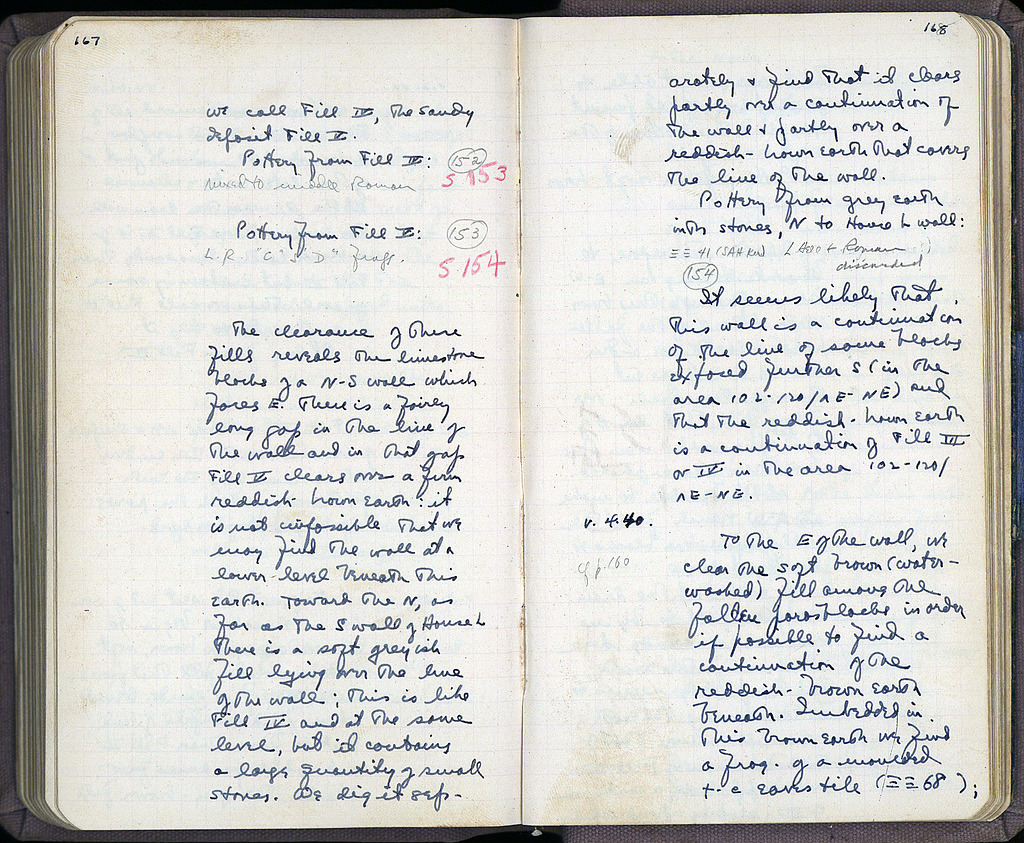 167
we call Fill IV, the sandy
deposit Fill V.
Pottery from Fill IV: (152)
mixed to middle Roman S 153
Pottery from Fill V: (153)
L.R. "C", "D" frags. S 154
The clearance of these
fills reveals the limestone
blocks of a N-S wall which
faces E. There is a fairly
long gap in the line of
the wall and in that gap
Fill V clears over a firm
reddish-brown earth: it
is not impossible that we
may find the wall at a
lower level beneath this
earth. Toward the N, as
far as the S wall of House L
there is a soft greyish
fill lying over the line
of the wall; this is like
Fill IV and at the same
level, but it contains
a large quantity of small
stones. We dig it sep-
168
arately & find that it clears
partly over a continuation of
the wall & partly over a
reddish-brown earth that covers
the line of the wall.
Pottery from grey earth
with stones, N to House L wall:
ΞΞ 41 (SAH KW) L Hell + Roman :)
(154) discarded
It seems likely that
this wall is a continuation
of the line of some blocks
exposed further S (in the
area 102-120/ΛE-NE) and
that the reddish-brown earth
is a continuation of Fill III
or IV in the area 102-120/
ΛE-NE.
v. 4.40.
To the E of the wall, we
cf p. 160
clear the soft brown (water-
washed) fill among the
fallen poros blocks in order
if possible to find a
continuation of the
reddish-brown earth
beneath. Imbedded in
this brown earth we find
a frag. of a moulded
t.c. eaves tile (ΞΞ 68);